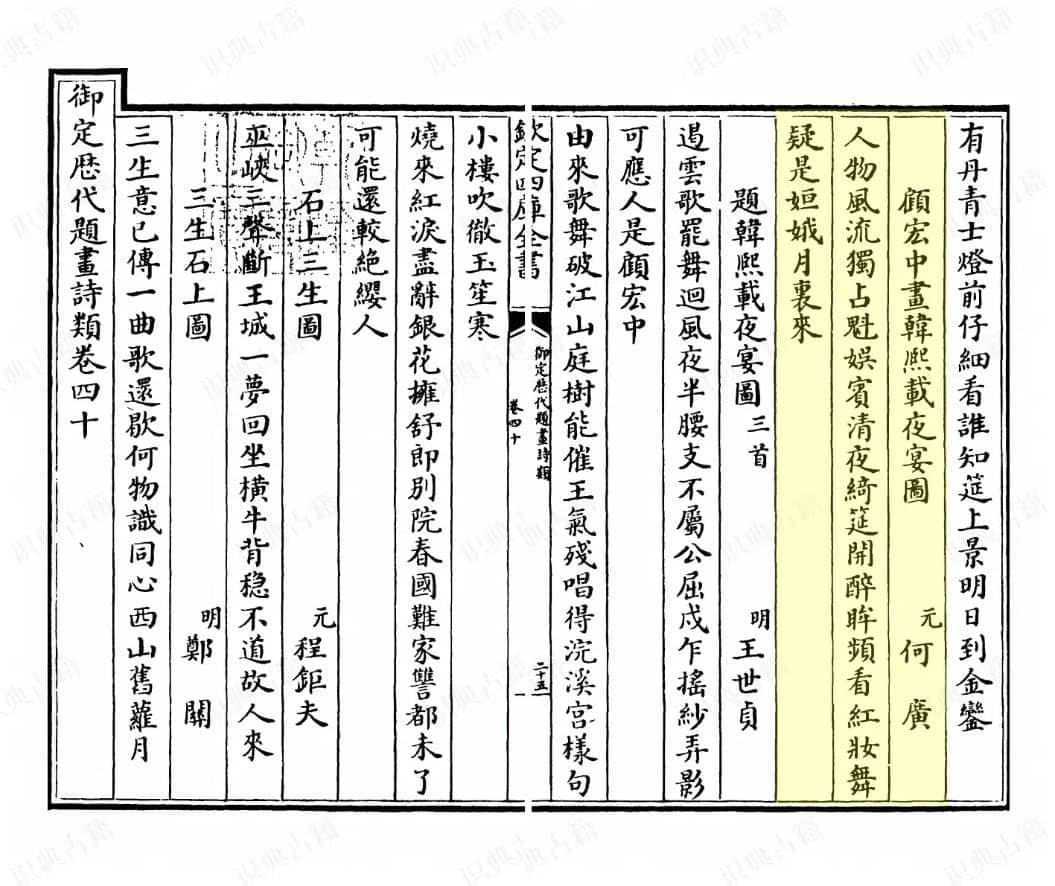 有丹青士燈前仔細看誰知筵上景明日到金鑾
顧宏中畫韓熙載夜宴圖 元 何廣
人物風流獨占魁娯賓清夜綺筵開醉眸頻看紅妝舞
疑是姮娥月裏來
題韓熙載夜宴圖 三首 明 王世貞
遏雲歌罷舞迴風夜半腰支不屬公屈戍乍搖紗弄影
可應人是顧宏中
由來歌舞破江山庭樹能催王氣殘唱得浣溪宫樣句
欽定四庫全書 御定歴代題畫詩類 卷四十 二十五
小樓吹徹玉笙寒
燒來紅淚盡辭銀花擁舒即别院春國難家讐都未了
可能還較絶纓人
石上三生圖 元 程鉅夫
巫峽三聲斷王城一夢回坐横牛背穏不道故人來
三生石上圖 明 鄭關
三生意已傳一曲歌還歇何物識同心西山舊蘿月
御定歴代題畫詩類卷四十
識典古籍